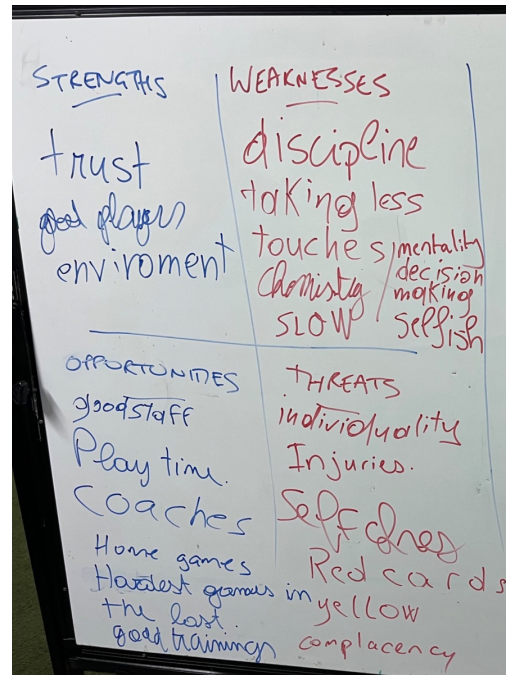 STRENGTHS
trust
good players
enviroment
WEAKNESSES
discipline
taking less
touches
Chemistry
SLOW
mentality
decision
making
selfish
OPPORTUNITIES
good staff
Play time.
coaches
Home games
Hardest games in
the last.
good trainings
THREATS
individuality
Injuries.
Red cards
yellow
complacency